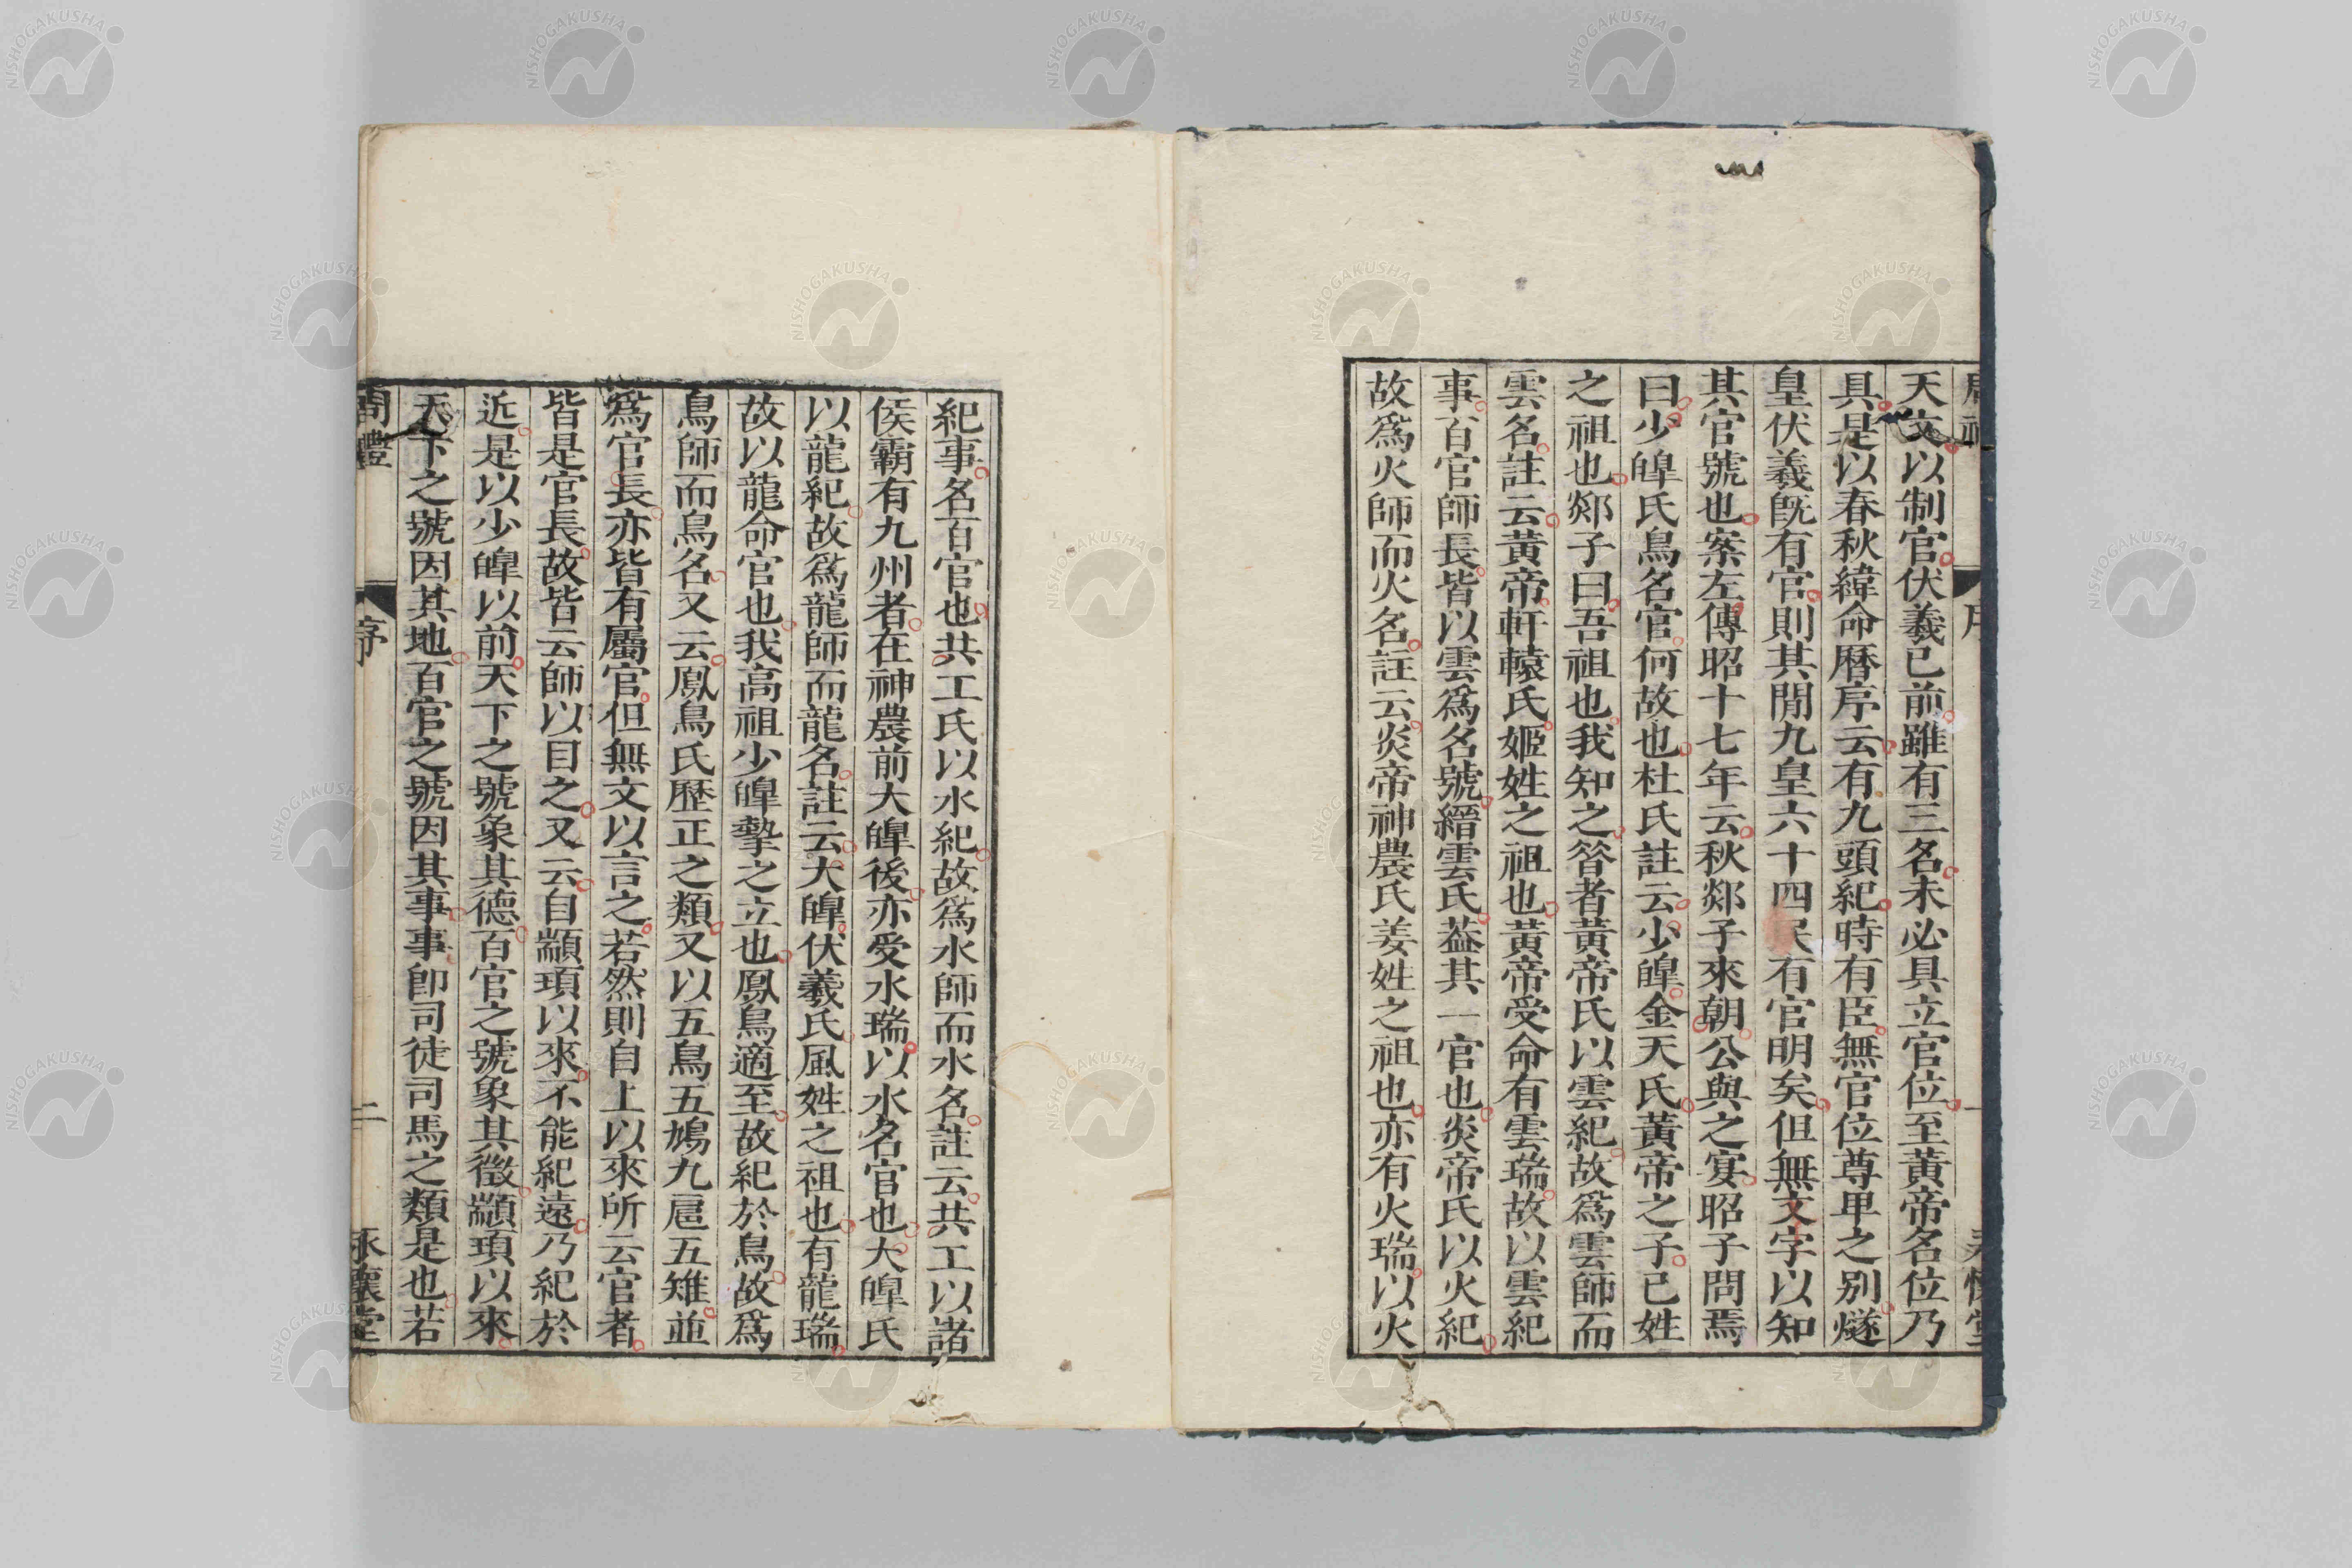 天文以制官伏羲已前雖有三名未必具立官位至黃帝名位乃
具是以春秋緯命曆序云有九頭紀時有臣無官位尊卑之別燧
皇伏羲旣有官則其閒九皇六十四民有官明矣但無文字以知
其官號也案左傳昭十七年云秋郯子來朝公與之宴昭子問焉
曰少皥氏鳥名官何故也杜氏註云少皥金天氏黃帝之子已姓
之祖也郯子曰吾祖也我知之昝者黃帝氏以雲紀故爲雲師而
雲名註云黃帝軒轅氏姬姓之祖也黃帝受命有雲瑞故以雲紀
事百官師長皆以雲爲名號縉雲氏葢其一官也炎帝氏以火紀
故爲火師而火名註云炎帝神農氏姜姓之祖也亦有火瑞以火
紀事名百官也共工氏以水紀故爲水師而水名註云共工以諸
侯霸有九州者在神農前大皥後亦受水瑞以水名官也大皥氏
以龍紀故爲龍師而龍名註云大皥伏羲氏風姓之祖也有龍瑞
故以龍命官也我高祖少皥摯之立也鳳鳥適至故紀於鳥故爲
鳥師而鳥名又云鳳鳥氏歷正之類又以五鳥五鳩九扈五雉並
爲官長亦皆有屬官但無文以言之若然則自上以來所云官者
皆是官長故皆云師以目之又云自顓頊以來不能紀遠乃紀於
近是以少皥以前天下之號象其德百官之號象其徵顓頊以來
天下之號因其地百官之號因其事事卽司徒司馬之類是也若
周禮 序 二 永懷堂
NISHOGAKUSHA